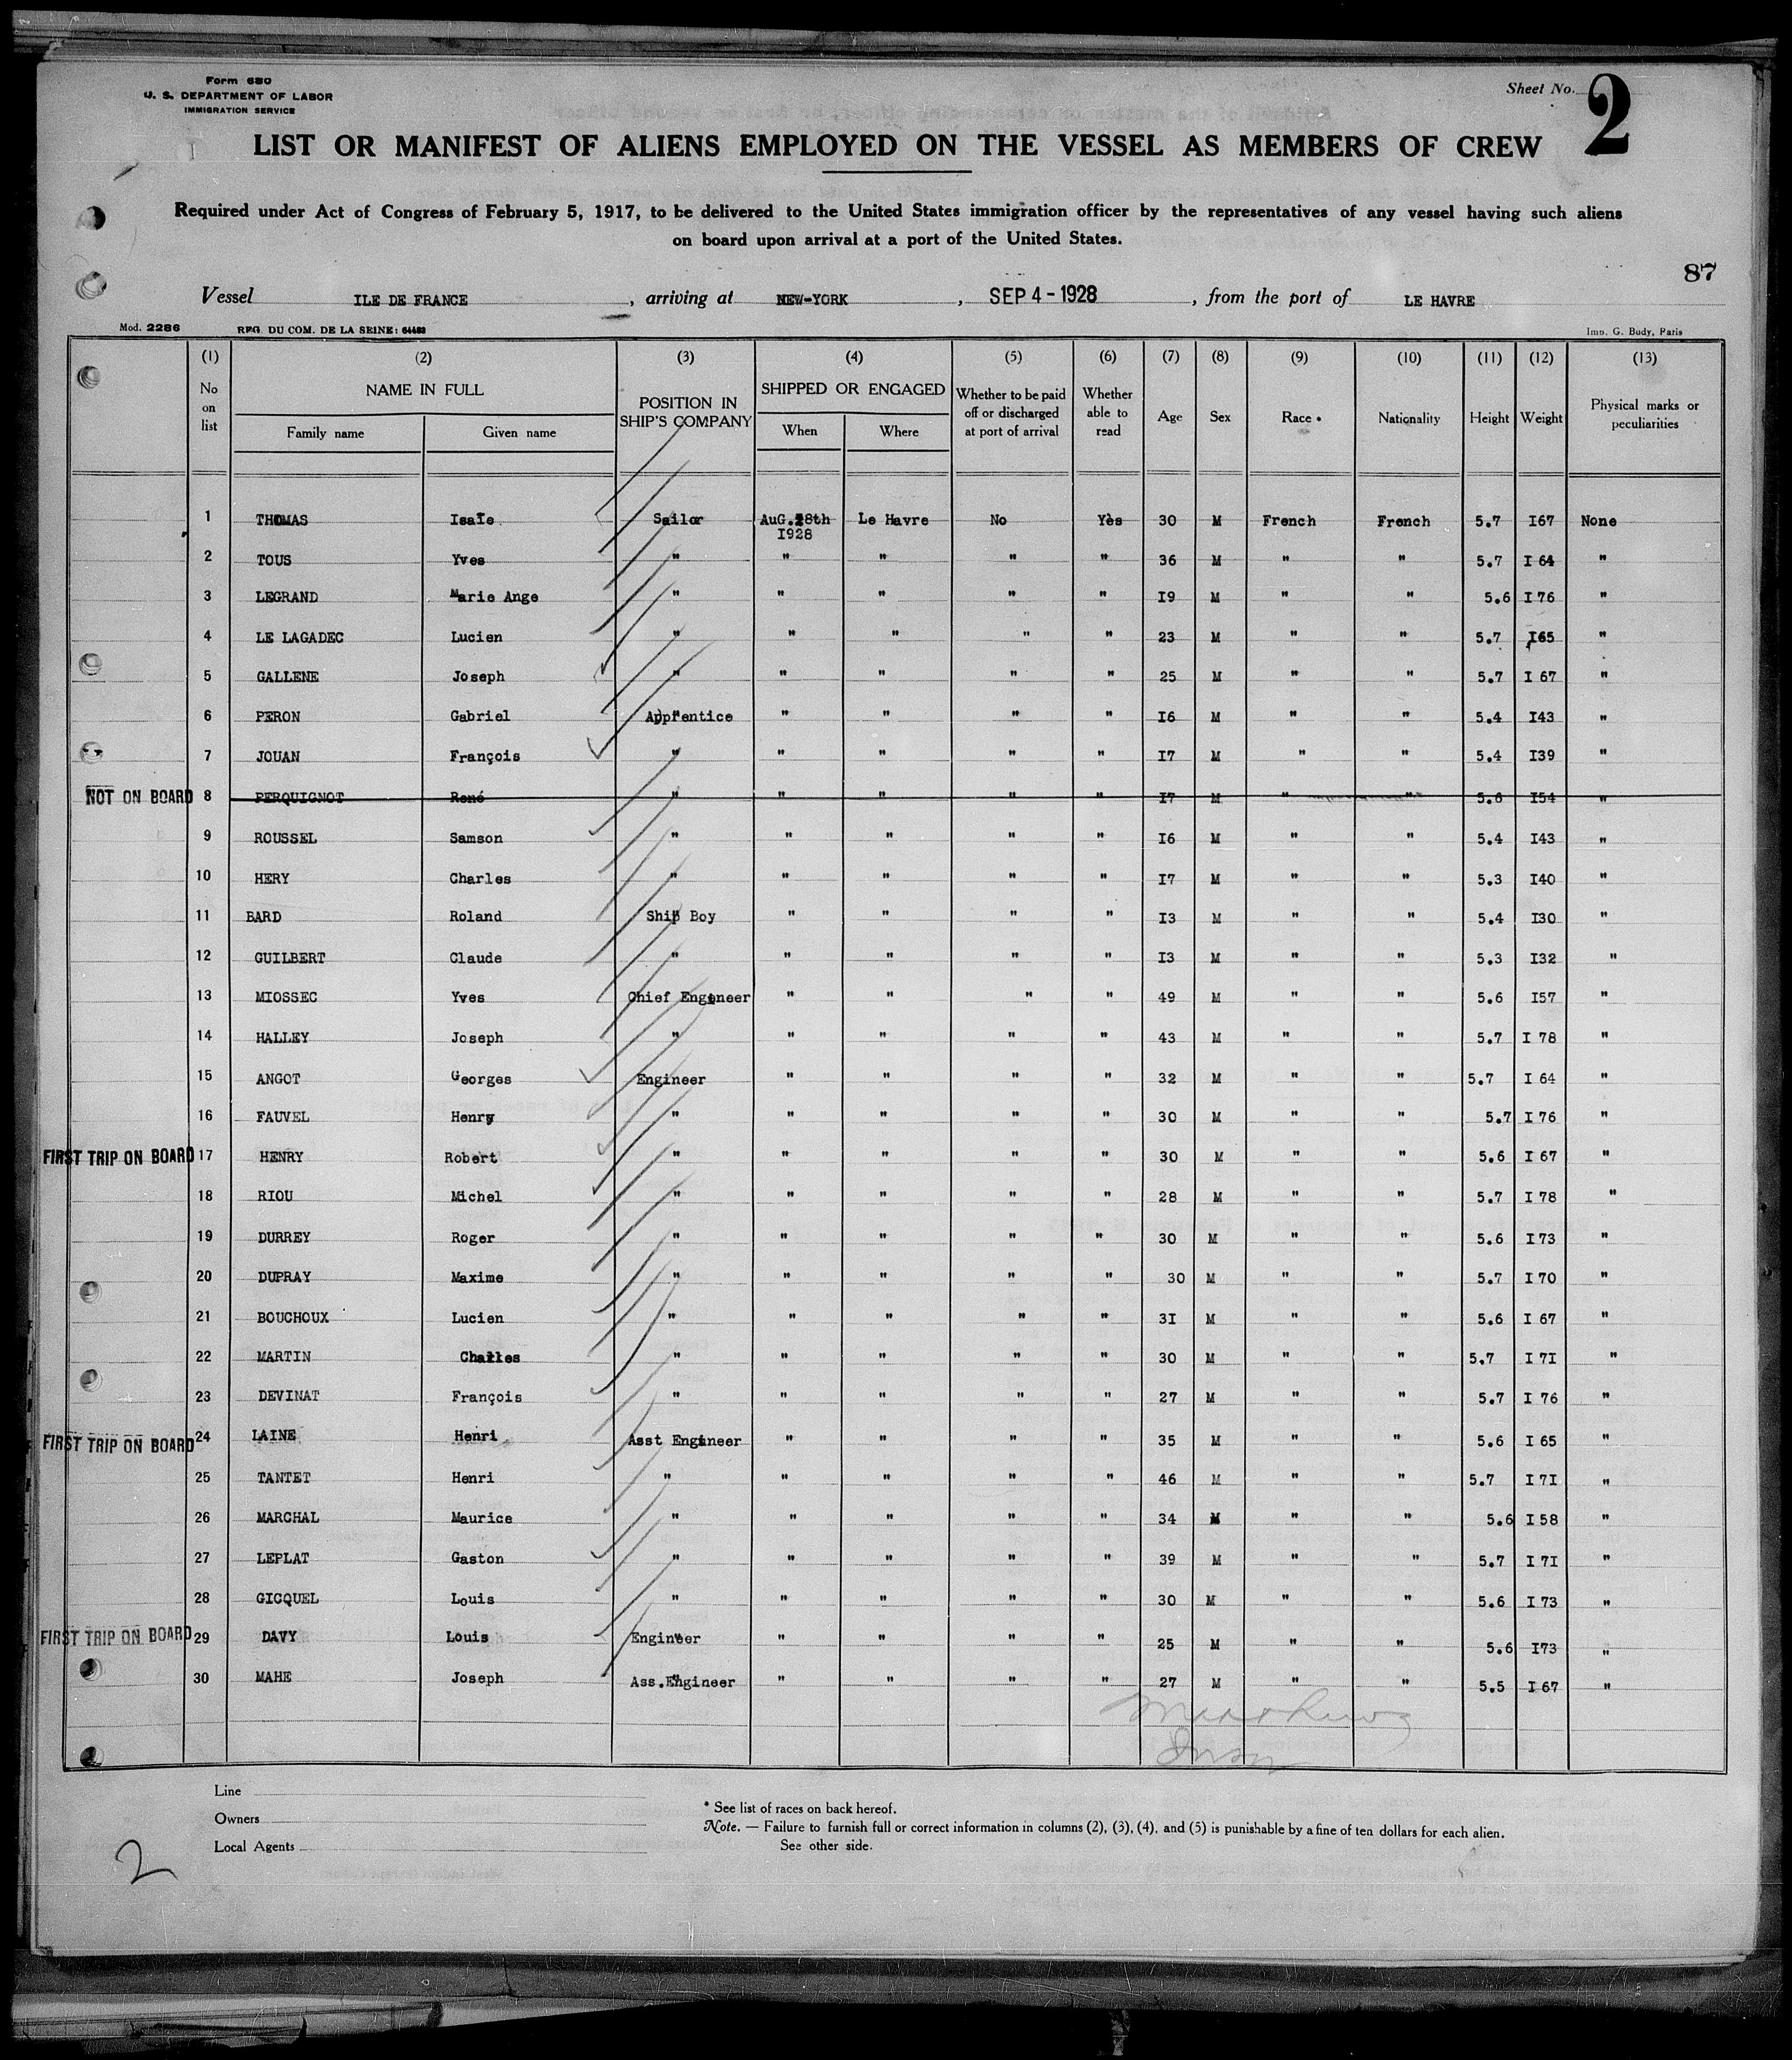 Form 680
U. S. DEPARTMENT OF LABOR
IMMIGRATION SERVICE
Sheet No. 2
LIST OR MANIFEST OF ALIENS EMPLOYED ON THE VESSEL AS MEMBERS OF CREW
Required under Act of Congress of February 5, 1917, to be delivered to the United States immigration officer by the representatives of any vessel having such aliens
on board upon arrival at a port of the United States.
87
Vessel ILE DE FRANCE, arriving at NEW-YORK, SEP 4 - 1928, from the port of LE HAVRE
Mod. 2286 REG. DU COM. DE LA SEINE: 64483 Imp. G. Budy, Paris
(1) (2) (3) (4) (5) (6) (7) (8) (9) (10) (11) (12) (13)
No on list NAME IN FULL Family name Given name POSITION IN SHIP'S COMPANY SHIPPED OR ENGAGED When Where Whether to be paid off or discharged at port of arrival Whether able to read Age Sex Race * Nationality Height Weight Physical marks or peculiarities
1 THOMAS Isaïe Sailor AuG.28th 1928 Le Havre No Yès 30 M French French 5.7 I67 None
2 TOUS Yves " " " " " 36 M " " 5.7 I 64 "
3 LEGRAND Marie Ange " " " " " I9 M " " 5.6 I 76 "
4 LE LAGADEC Lucien " " " " " 23 M " " 5.7 I65 "
5 GALLENE Joseph " " " " " 25 M " " 5.7 I 67 "
6 PERON Gabriel Apprentice " " " " I6 M " " 5.4 I43 "
7 JOUAN François " " " " " I7 M " " 5.4 I39 "
NOT ON BOARD 8 PERQUIGNOT René " " " " " I7 M " " 5.6 I54 "
9 ROUSSEL Samson " " " " " I6 M " " 5.4 I43 "
10 HERY Charles " " " " " I7 M " " 5.3 I40 "
11 BARD Roland Ship Boy " " " " I3 M " " 5.4 I30 "
12 GUILBERT Claude " " " " " I3 M " " 5.3 I32 "
13 MIOSSEC Yves Chief Engineer " " " " 49 M " " 5.6 I57 "
14 HALLEY Joseph " " " " " 43 M " " 5.7 I 78 "
15 ANGOT Georges Engineer " " " " 32 M " " 5.7 I 64 "
16 FAUVEL Henry " " " " " 30 M " " 5.7 I 76 "
FIRST TRIP ON BOARD 17 HENRY Robert " " " " " 30 M " " 5.6 I 67 "
18 RIOU Michel " " " " " 28 M " " 5.7 I 78 "
19 DURREY Roger " " " " " 30 M " " 5.6 I 73 "
20 DUPRAY Maxime " " " " " 30 M " " 5.7 I 70 "
21 BOUCHOUX Lucien " " " " " 3I M " " 5.6 I 67 "
22 MARTIN Charles " " " " " 30 M " " 5.7 I 7I "
23 DEVINAT François " " " " " 27 M " " 5.7 I 76 "
FIRST TRIP ON BOARD 24 LAINE Henri Asst Engineer " " " " 35 M " " 5.6 I 65 "
25 TANTET Henri " " " " " 46 M " " 5.7 I 7I "
26 MARCHAL Maurice " " " " " 34 M " " 5.6 I 58 "
27 LEPLAT Gaston " " " " " 39 M " " 5.7 I 7I "
28 GICQUEL Louis " " " " " 30 M " " 5.6 I 73 "
FIRST TRIP ON BOARD 29 DAVY Louis Engineer " " " " 25 M " " 5.6 I73 "
30 MAHE Joseph Ass.Engineer " " " " 27 M " " 5.5 I 67 "
Line
Owners
Local Agents
* See list of races on back hereof.
Note. — Failure to furnish full or correct information in columns (2), (3), (4), and (5) is punishable by a fine of ten dollars for each alien.
See other side.
2